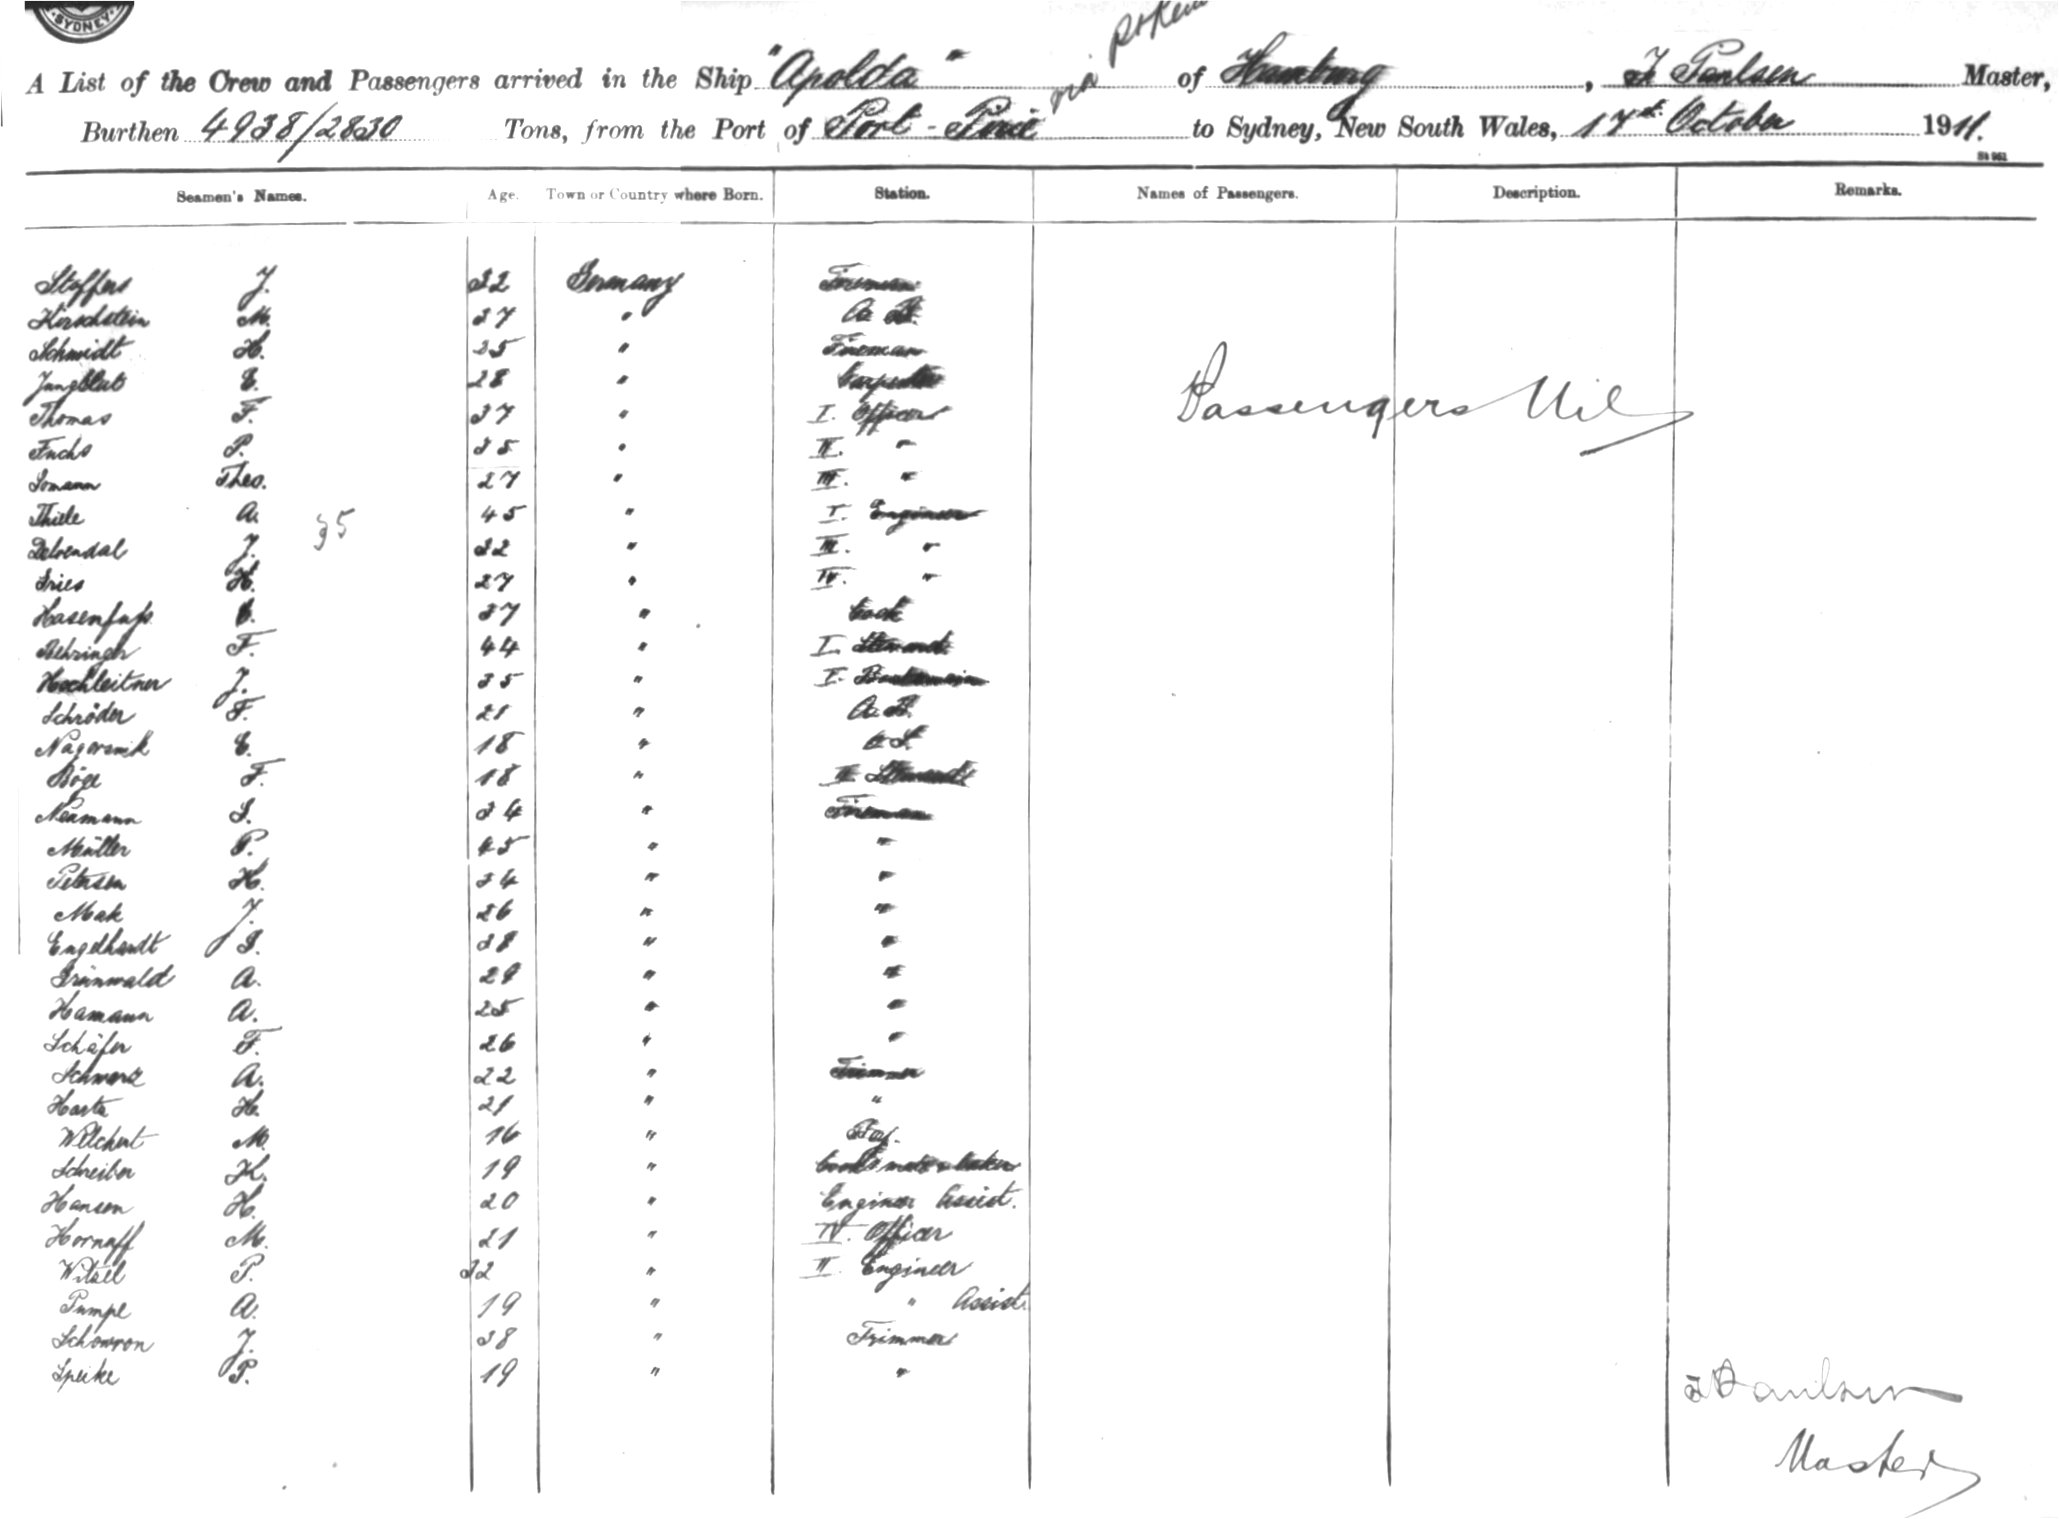 SYDNEY
via Pt Kem
A List of the Crew and Passengers arrived in the Ship "Apolda" of Hamburg, F. Paulsen Master,
Burthen 4938/2830 Tons, from the Port of Port-Pirie to Sydney, New South Wales, 17th October 1911.
St 961
Seamen's Names. Age. Town or Country where Born. Station. Names of Passengers. Description. Remarks.
Stoffers J. 32 Germany Fireman
Kirschstein M. 27 " A. B.
Schmidt H. 25 " Fireman
Jungblut E. 28 " Carpenter
Thomas F. 37 " I. Officer
Passengers Nil
Fuchs P. 35 " II. "
Theo. 27 " III. "
Thiele A. 45 " I. Engineer
35
Delvendal J. 32 " III. "
Fries H. 27 " IV. "
Hasenfuß C. 37 " Cook
Behringer F. 44 " I. Steward
Hochleitner J. 35 " I. Boatswain
Schröder F. 21 " A. B.
E. 18 " O. S.
Böge F. 18 " II Steward
Neumann G. 34 " Fireman
Müller P. 45 " "
Petersen H. 34 " "
Mak J. 26 " "
Engelhardt G. 38 " "
Grünwald A. 29 " "
Hamann A. 25 " "
Schäfer F. 26 " "
Schwarz A. 22 " Trimmer
H. 21 " "
Wilchert M. 16 " Boy.
Schreiber K. 19 " Cook's mate & baker
Hansen H. 20 " Engineer Assist.
Hornaff M. 21 " IV. Officer
Witzel P. 32 " II. Engineer
Pumpe A. 19 " " Assist.
Schowron J. 38 " Trimmer
Speike P. 19 " "
F Paulsen
Master